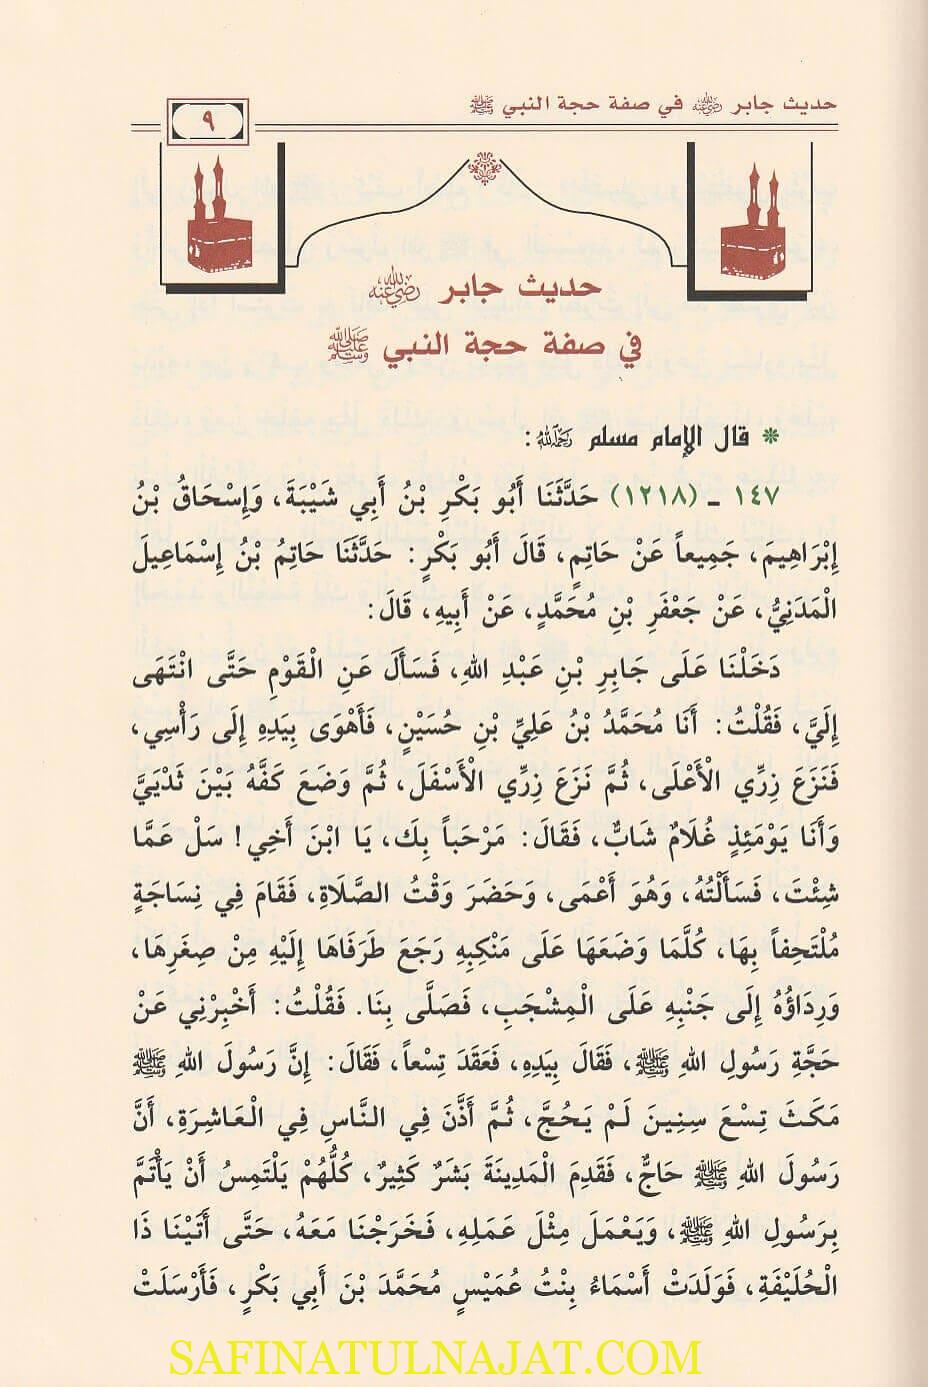 حديث جابر رضي الله عنه في صفة حجة النبي ﷺ
٩
حديث جابر رضي الله عنه
في صفة حجة النبي ﷺ
* قال الإمام مسلم رحمه الله :
١٤٧ ـ (١٢١٨) حَدَّثَنَا أَبُو بَكْرِ بْنُ أَبِي شَيْبَةَ، وَإِسْحَاقُ بْنُ
إِبْرَاهِيمَ، جَمِيعاً عَنْ حَاتِمٍ، قَالَ أَبُو بَكْرٍ: حَدَّثَنَا حَاتِمُ بْنُ إِسْمَاعِيلَ
الْمَدَنِيُّ، عَنْ جَعْفَرِ بْنِ مُحَمَّدٍ، عَنْ أَبِيهِ، قَالَ:
دَخَلْنَا عَلَى جَابِرِ بْنِ عَبْدِ اللهِ، فَسَأَلَ عَنِ الْقَوْمِ حَتَّى انْتَهَى
إِلَيَّ، فَقُلْتُ: أَنَا مُحَمَّدُ بْنُ عَلِيِّ بْنِ حُسَيْنٍ، فَأَهْوَى بِيَدِهِ إِلَى رَأْسِي،
فَنَزَعَ زِرِّي الْأَعْلَى، ثُمَّ نَزَعَ زِرِّي الْأَسْفَلَ، ثُمَّ وَضَعَ كَفَّهُ بَيْنَ ثَدْيَيَّ
وَأَنَا يَوْمَئِذٍ غُلَامٌ شَابٌّ، فَقَالَ: مَرْحَباً بِكَ، يَا ابْنَ أَخِي! سَلْ عَمَّا
شِئْتَ، فَسَأَلْتُهُ، وَهُوَ أَعْمَى، وَحَضَرَ وَقْتُ الصَّلَاةِ، فَقَامَ فِي نِسَاجَةٍ
مُلْتَحِفاً بِهَا، كُلَّمَا وَضَعَهَا عَلَى مَنْكِبِهِ رَجَعَ طَرَفَاهَا إِلَيْهِ مِنْ صِغَرِهَا،
وَرِدَاؤُهُ إِلَى جَنْبِهِ عَلَى الْمِشْجَبِ، فَصَلَّى بِنَا. فَقُلْتُ: أَخْبِرْنِي عَنْ
حَجَّةِ رَسُولِ اللهِ ﷺ، فَقَالَ بِيَدِهِ، فَعَقَدَ تِسْعاً، فَقَالَ: إِنَّ رَسُولَ اللهِ ﷺ
مَكَثَ تِسْعَ سِنِينَ لَمْ يَحُجَّ، ثُمَّ أَذَّنَ فِي النَّاسِ فِي الْعَاشِرَةِ، أَنَّ
رَسُولَ اللهِ ﷺ حَاجٌّ، فَقَدِمَ الْمَدِينَةَ بَشَرٌ كَثِيرٌ، كُلُّهُمْ يَلْتَمِسُ أَنْ يَأْتَمَّ
بِرَسُولِ اللهِ ﷺ، وَيَعْمَلَ مِثْلَ عَمَلِهِ، فَخَرَجْنَا مَعَهُ، حَتَّى أَتَيْنَا ذَا
الْحُلَيْفَةِ، فَوَلَدَتْ أَسْمَاءُ بِنْتُ عُمَيْسٍ مُحَمَّدَ بْنَ أَبِي بَكْرٍ، فَأَرْسَلَتْ
SAFINATULNAJAT.COM